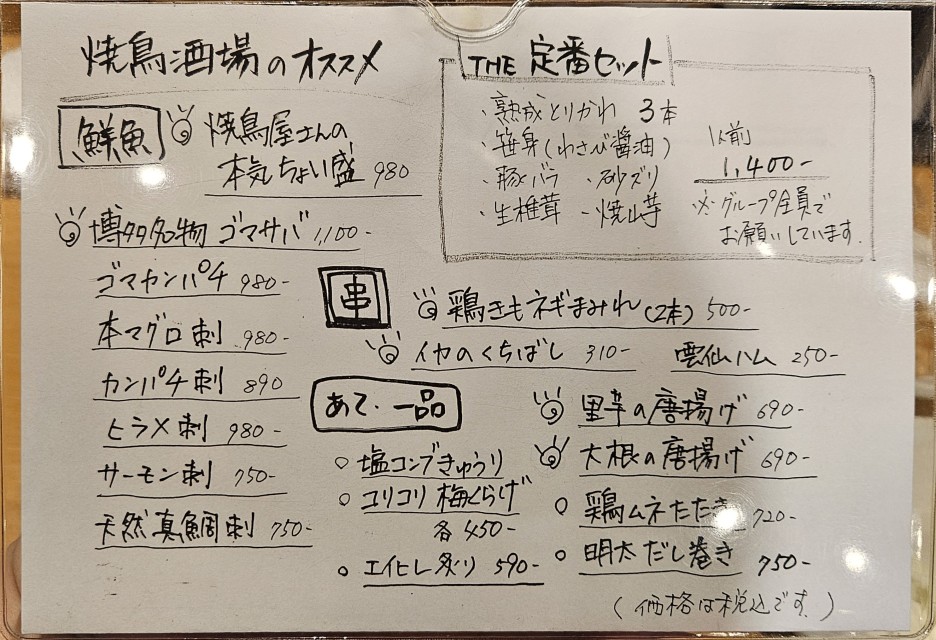 焼鳥酒場のオススメ
鮮魚
焼鳥屋さんの
本気ちょい盛 980
博多名物 ゴマサバ 1,100-
ゴマカンパチ 980-
本マグロ刺 980-
カンパチ刺 890
ヒラメ刺 980-
サーモン刺 750-
天然真鯛刺 750-
THE 定番セット
・熟成とりかわ 3本
・笹身(わさび醤油)
・豚バラ ・砂ズリ
・生椎茸 ・焼山芋
1人前
1,400-
※グループ全員で
お願いしています。
串
鶏きもネギまみれ(2本) 500-
イカのくちばし 310-
雲仙ハム 250-
あて・一品
○塩コンブきゅうり
○コリコリ梅くらげ
各450-
○エイヒレ炙り 590-
里芋の唐揚げ 690-
大根の唐揚げ 690-
○鶏ムネたたき 720-
○明太だし巻き 750-
(価格は税込です。)